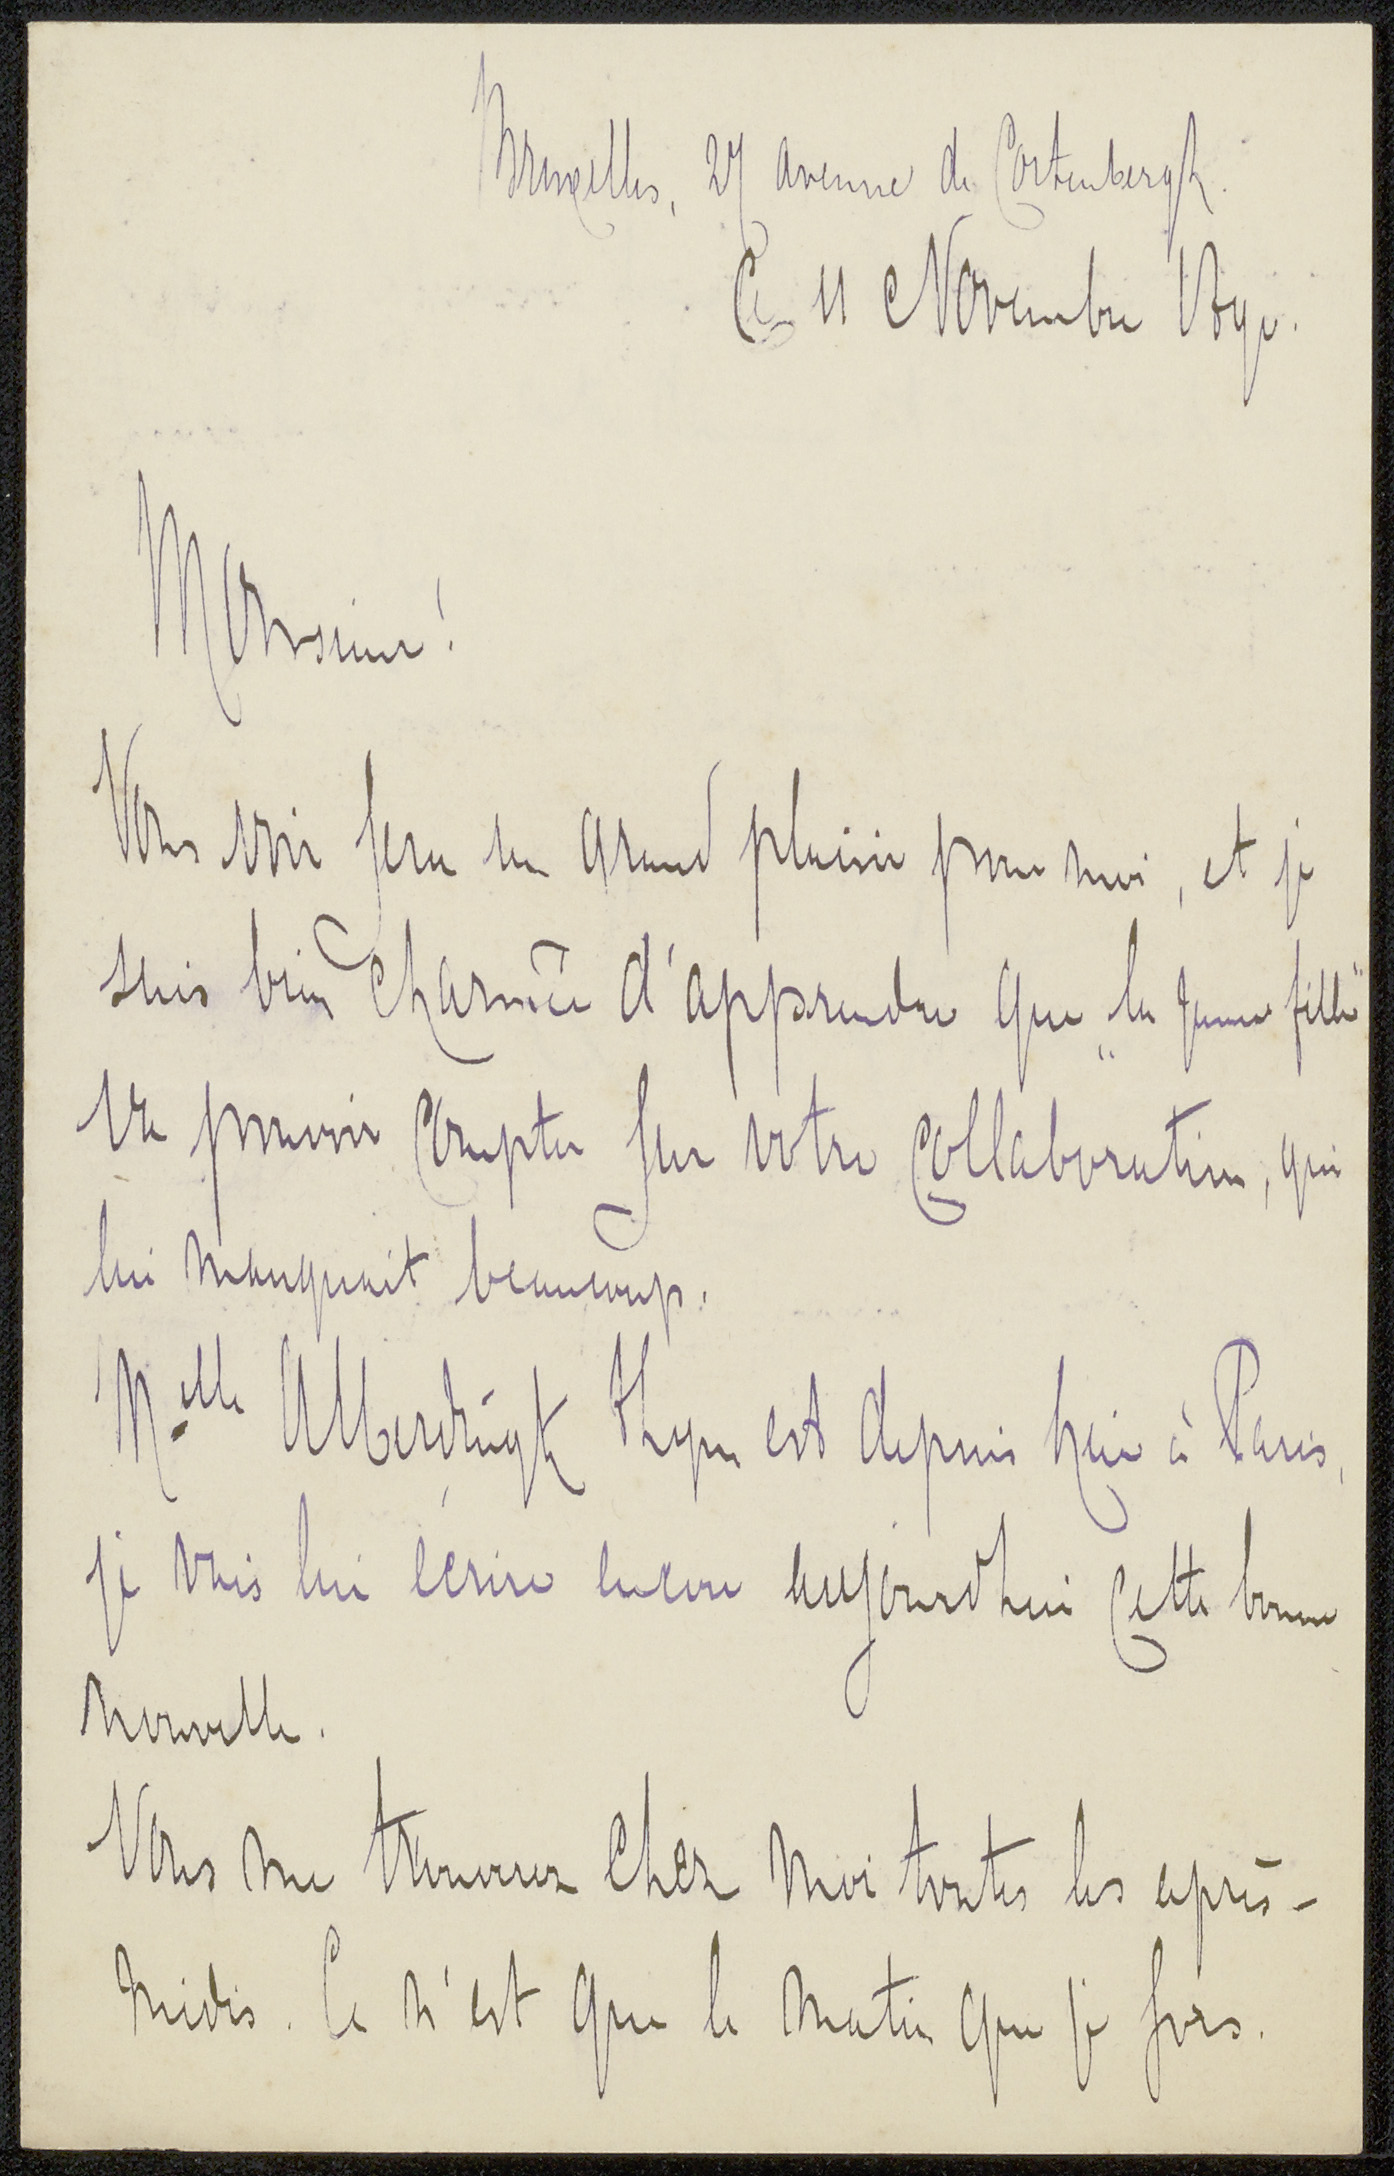 Bruxelles, 27 avenue de Cortenbergh.
Ce 11 Novembre 1890.
Monsieur!
Vous voir sera un grand plaisir pour moi, et je
suis bien charmée d'apprendre que „la jeune fille"
va pouvoir compter sur votre collaboration, qui
lui manquait beaucoup.
Melle Alberdingk Thym est depuis hier à Paris,
je vais lui écrire encore aujourd'hui cette bonne
nouvelle.
Vous me trouverez chez moi toutes les après-
midis. Ce n'est que le matin que je sors.